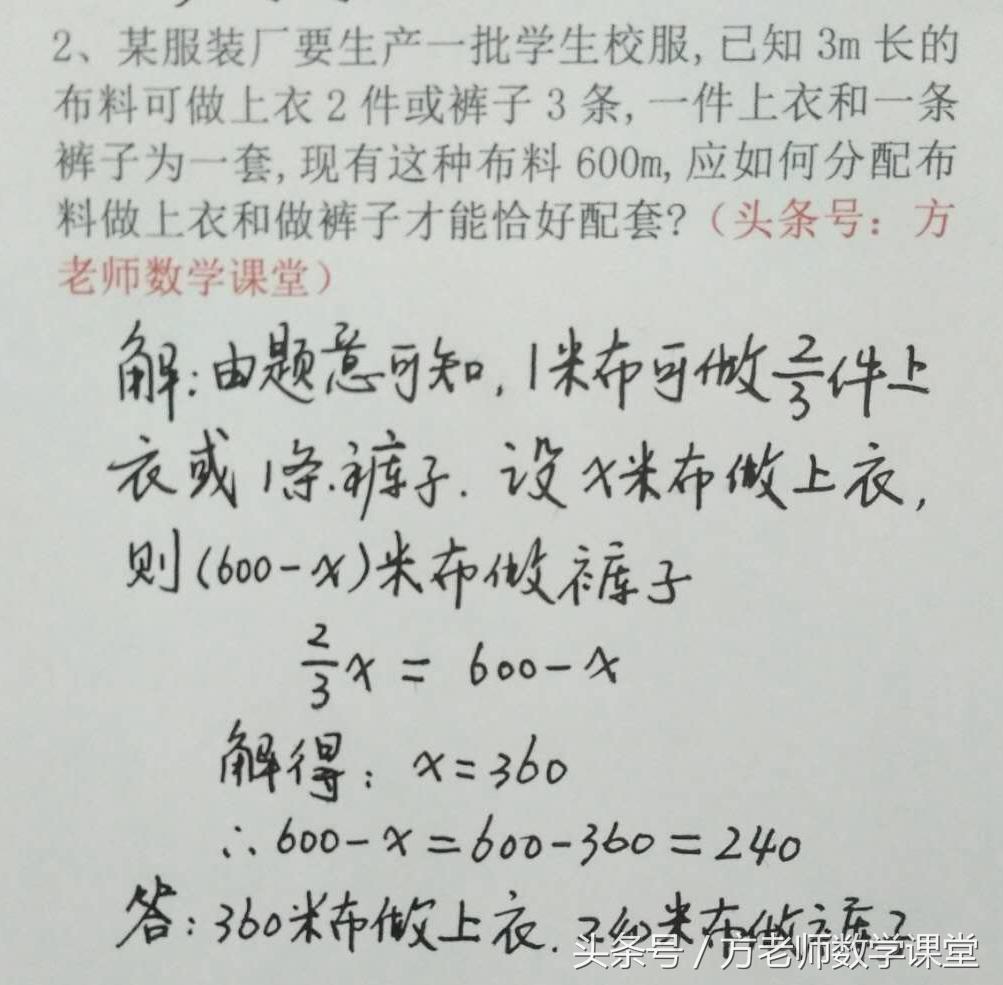 2、某服装厂要生产一批学生校服,已知 3m 长的
布料可做上衣 2 件或裤子 3 条, 一件上衣和一条
裤子为一套,现有这种布料 600m,应如何分配布
料做上衣和做裤子才能恰好配套?(头条号：方
老师数学课堂)
解:由题意可知, 1米布可做2/3件上
衣或 1条裤子. 设 x米布做上衣,
则(600-x)米布做裤子
2/3x = 600-x
解得: x=360
∴600-x=600-360=240
答: 360米布做上衣. 240米布做裤子
头条号 / 方老师数学课堂